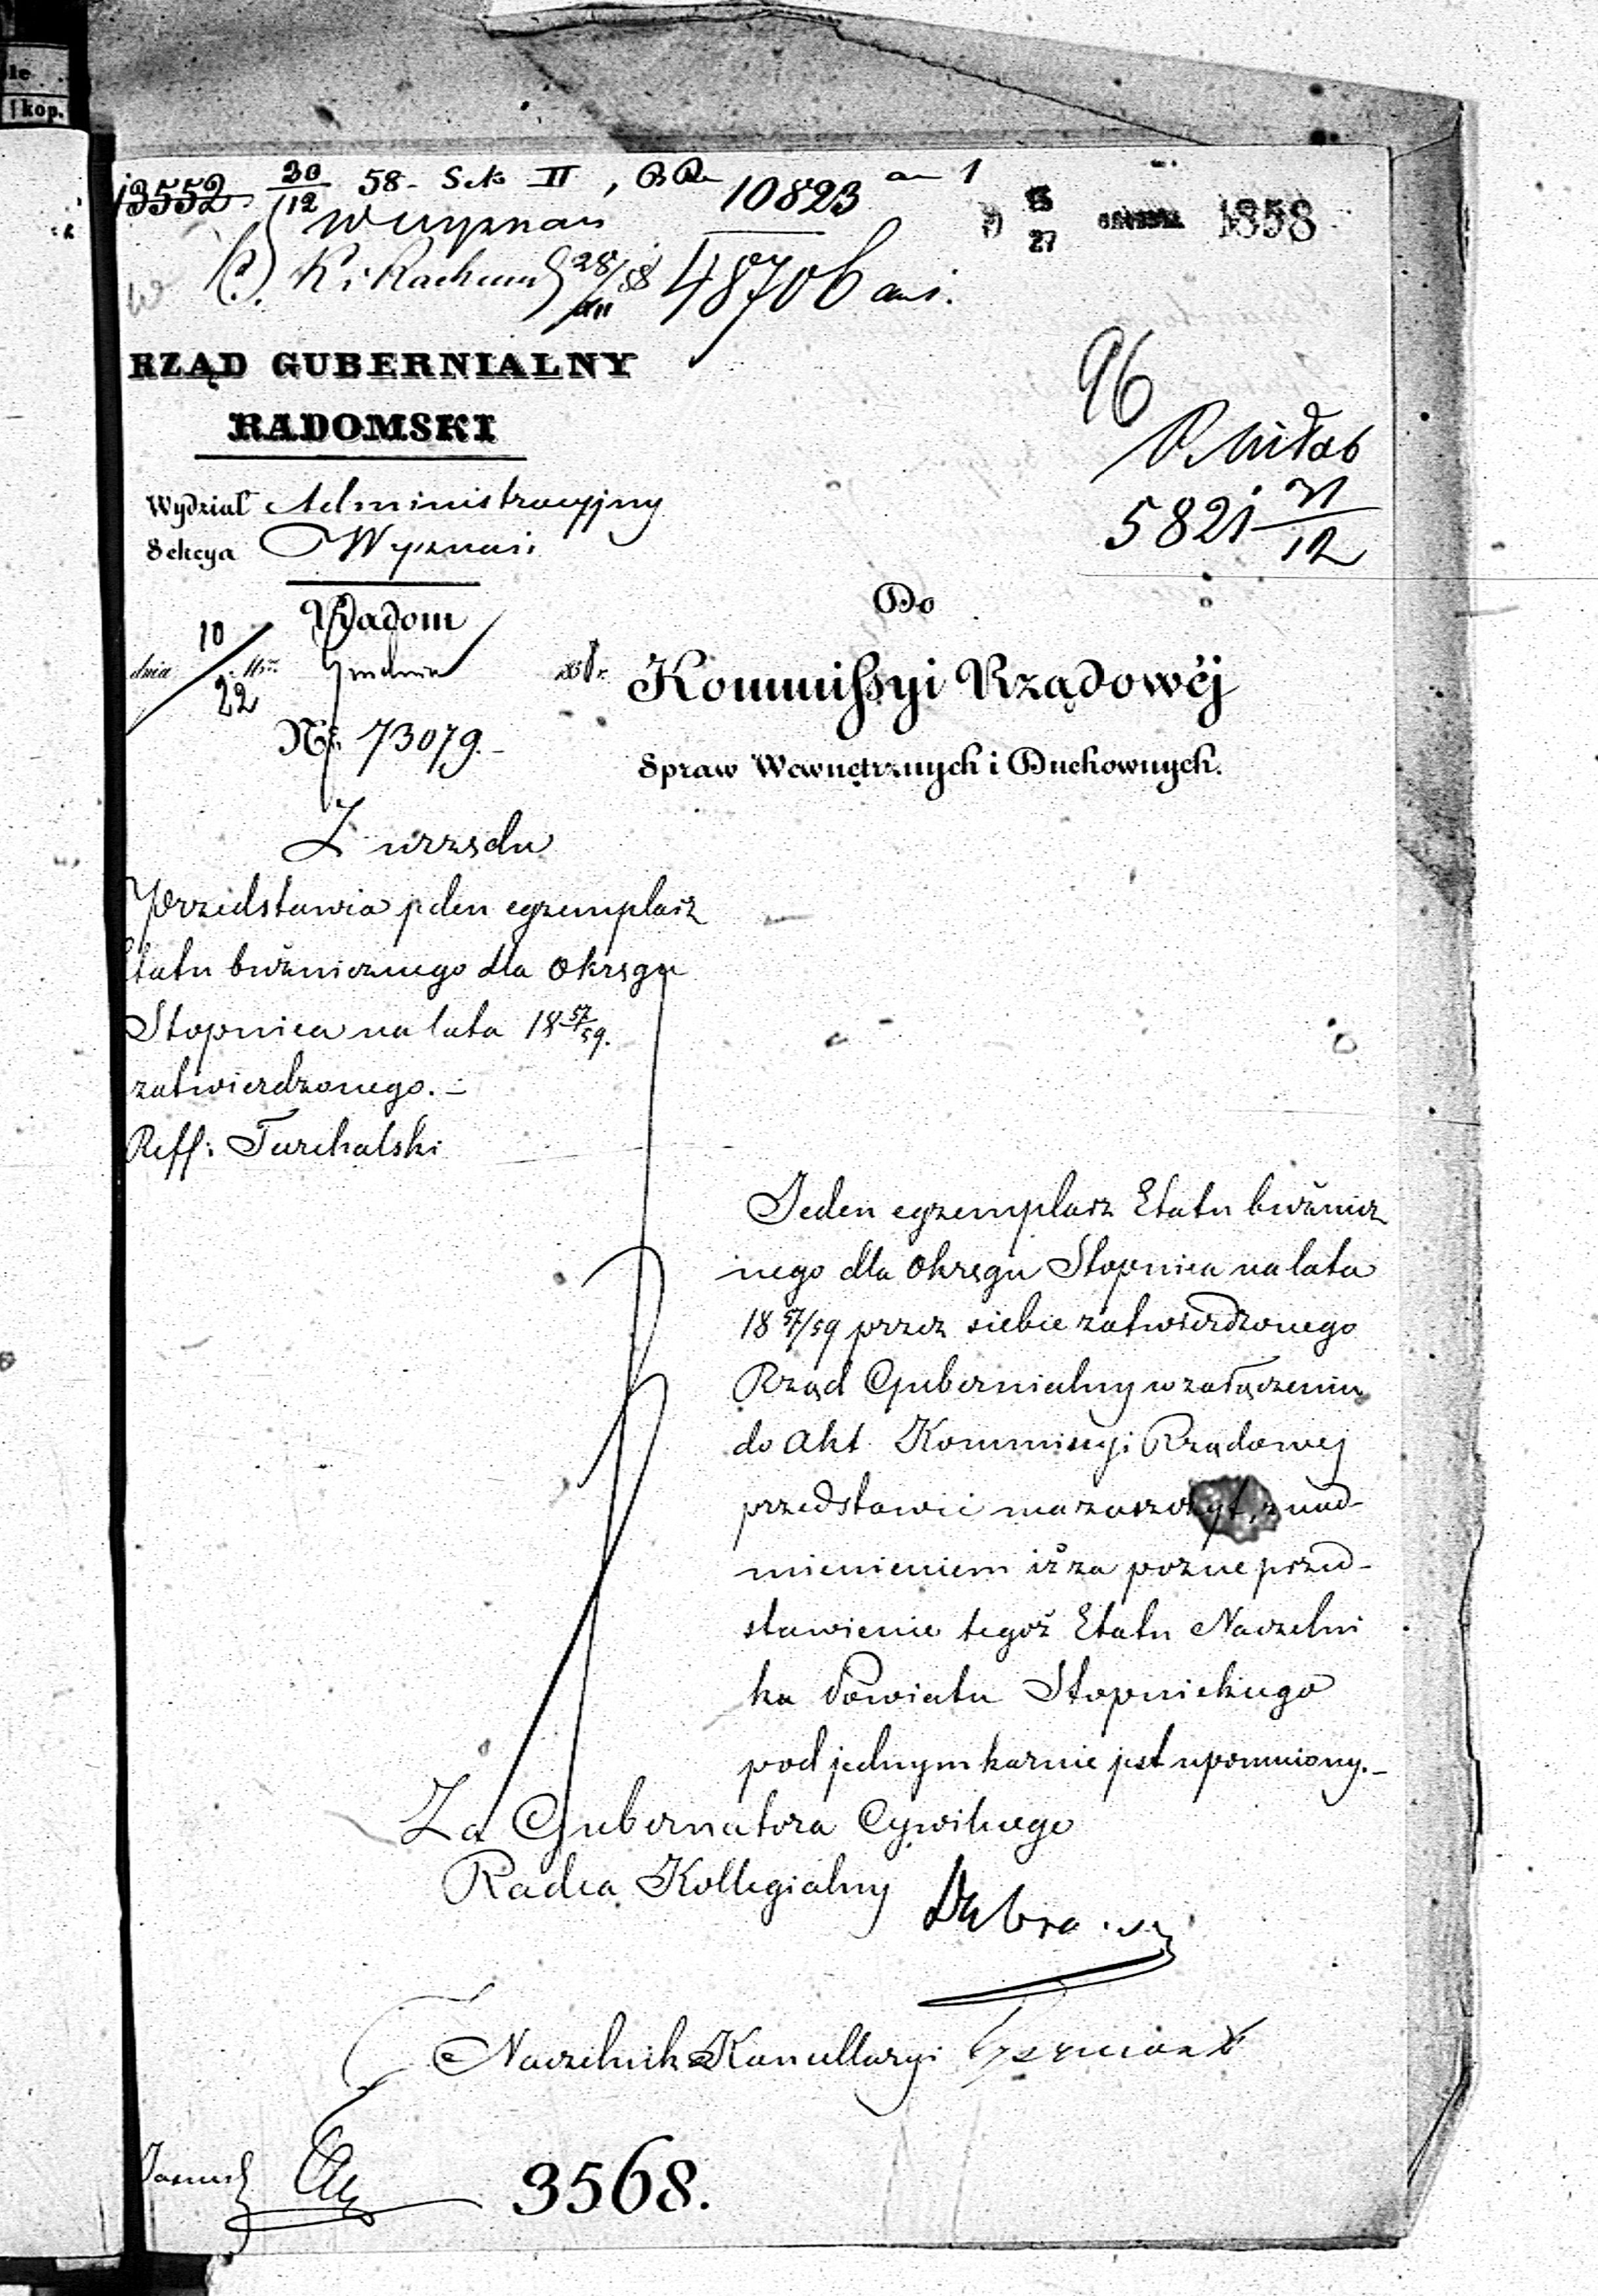 le
kop.
13552 30/12 58 - Sek II, 10823 an 1
Wyznań 15/27 1858
K. i Rachun 28/XII 58 48706 an 1.
RZĄD GUBERNIALNY
96
RADOMSKI
Wydział Administracyjny
5821 31/12
Sekcya Wyznań
Radom
Do
dnia 10/22 Grudnia
Kommissyi Rządowéj
Nr. 73079.
Spraw Wewnętrznych i Duchownych.
Z urzędu
Przedstawia jeden egzemplarz
Etatu bużnicznego dla Okręgu
Stopnica na lata 18 57/59.
zatwierdzonego. -
Reff: Turchalski
Jeden egzemplarz Etatu bużnicz
nego dla Okręgu Stopnica na lata
18 57/59 przez siebie zatwierdzonego
Rząd Gubernialny w załączeniu
do Akt Kommissyi Rządowej
przedstawić ma zaszczyt, z nad-
mienieniem iż za pozne przed-
stawienie tegoż Etatu Naczelni
ka Powiatu Stopnickiego
pod jednym karnie jest upomniony. -
Za Gubernatora Cywilnego
Radca Kollegialny
Naczelnik Kancellaryi
3568.